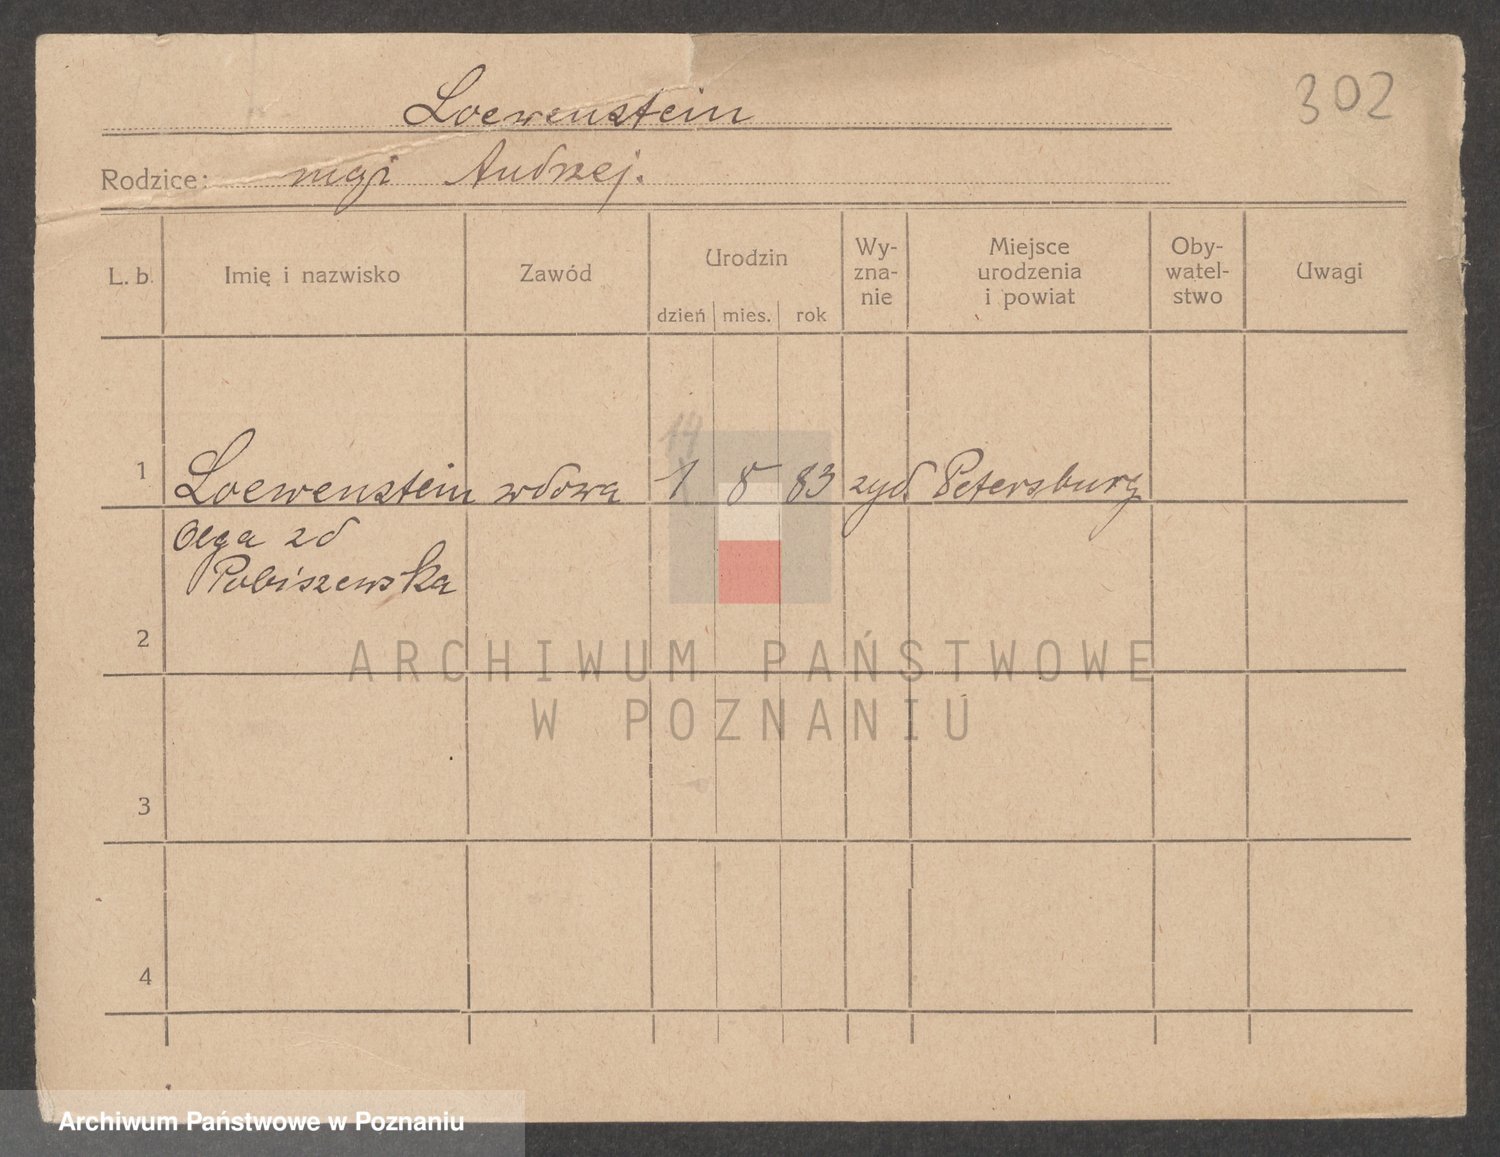 302
Loewenstein
Rodzice: mąż Andrzej.
L. b. Imię i nazwisko Zawód Urodzin dzień mies. rok Wy-zna-nie Miejsce urodzenia i powiat Oby-watel-stwo Uwagi
14
1 Loewenstein wdowa 1 8 83 żyd Petersburg
Olga zd
Pobiszewska
2
3
4
ARCHIWUM PAŃSTWOWE
W POZNANIU
Archiwum Państwowe w Poznaniu